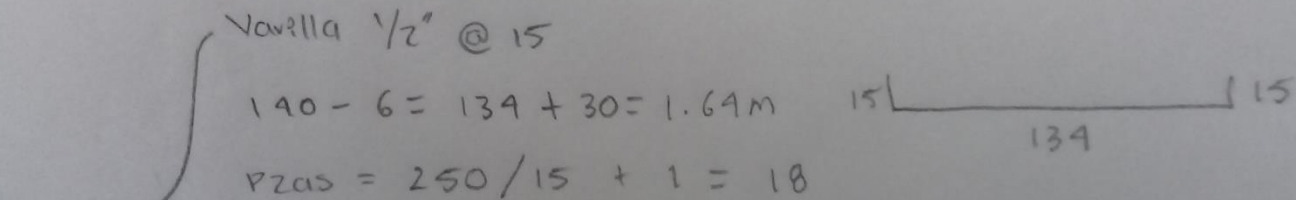 Varilla 1/2" @ 15
140 - 6 = 134 + 30 = 1.64m
15 15
134
Pzas = 250/15 + 1 = 18